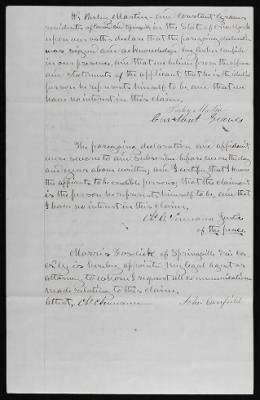 We Parley Martin and Constant Graves
residents of in the State of New York
upon our oaths declare that the foregoing declaration
was signed and acknowledged by John Canfield
in our presence, and that we believe from the appear
ance statements of the applicant that he is the identical
person he represents himself to be and that we
have no interest in this claim.
Parley Martin
Constant Graves
The foregoing declaration and affidavit
were sworn to and subscribed before me on the day
and year above written and I certify that I know
the affiants to be credible persons; that the claimant
is the person he represents himself to be, and that
I have no interest in this claim.
Justice
of the peace
Morris Fosdick of Springville Erie Co
N.Y. is hereby appointed my legal agent or
attorney, to whom I request all communications
made relating to this claim.
Attest, John Canfield